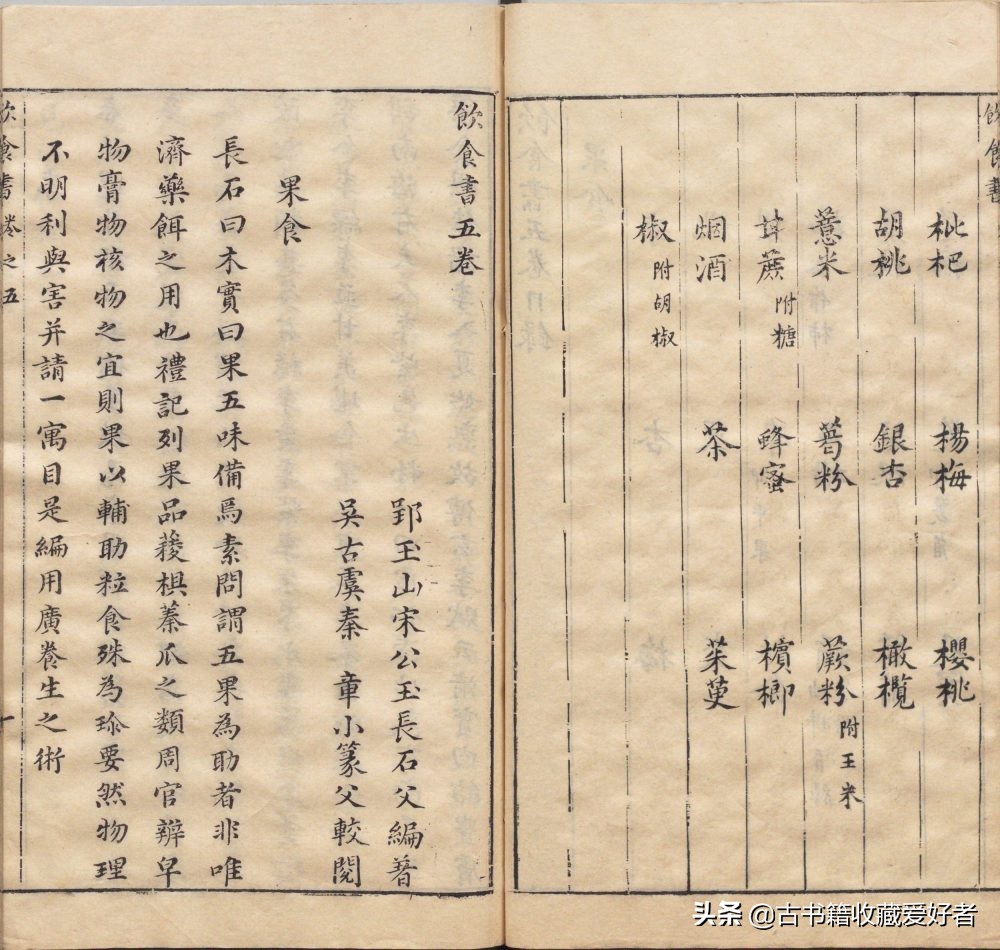 飲食書
枇杷 楊梅 櫻桃
胡桃 銀杏 橄欖
薏米 葛粉 蕨粉 附玉米
甘蔗 附糖 蜂蜜 檳榔
烟酒 茶 茱萸
椒 附胡椒
飲食書五卷
郢玉山宋公玉長石父編著
吳古虞秦 章小篆父較閱
果食
長石曰木實曰果五味備焉素問謂五果為助者非唯
濟藥餌之用也禮記列果品蔆棋蓁爪之類周官辨皁
物膏物核物之宜則果以輔助粒食殊為珎要然物理
不明利與害并請一寓目是編用廣養生之術
飲食書 卷之五 一
头条 @古书籍收藏爱好者